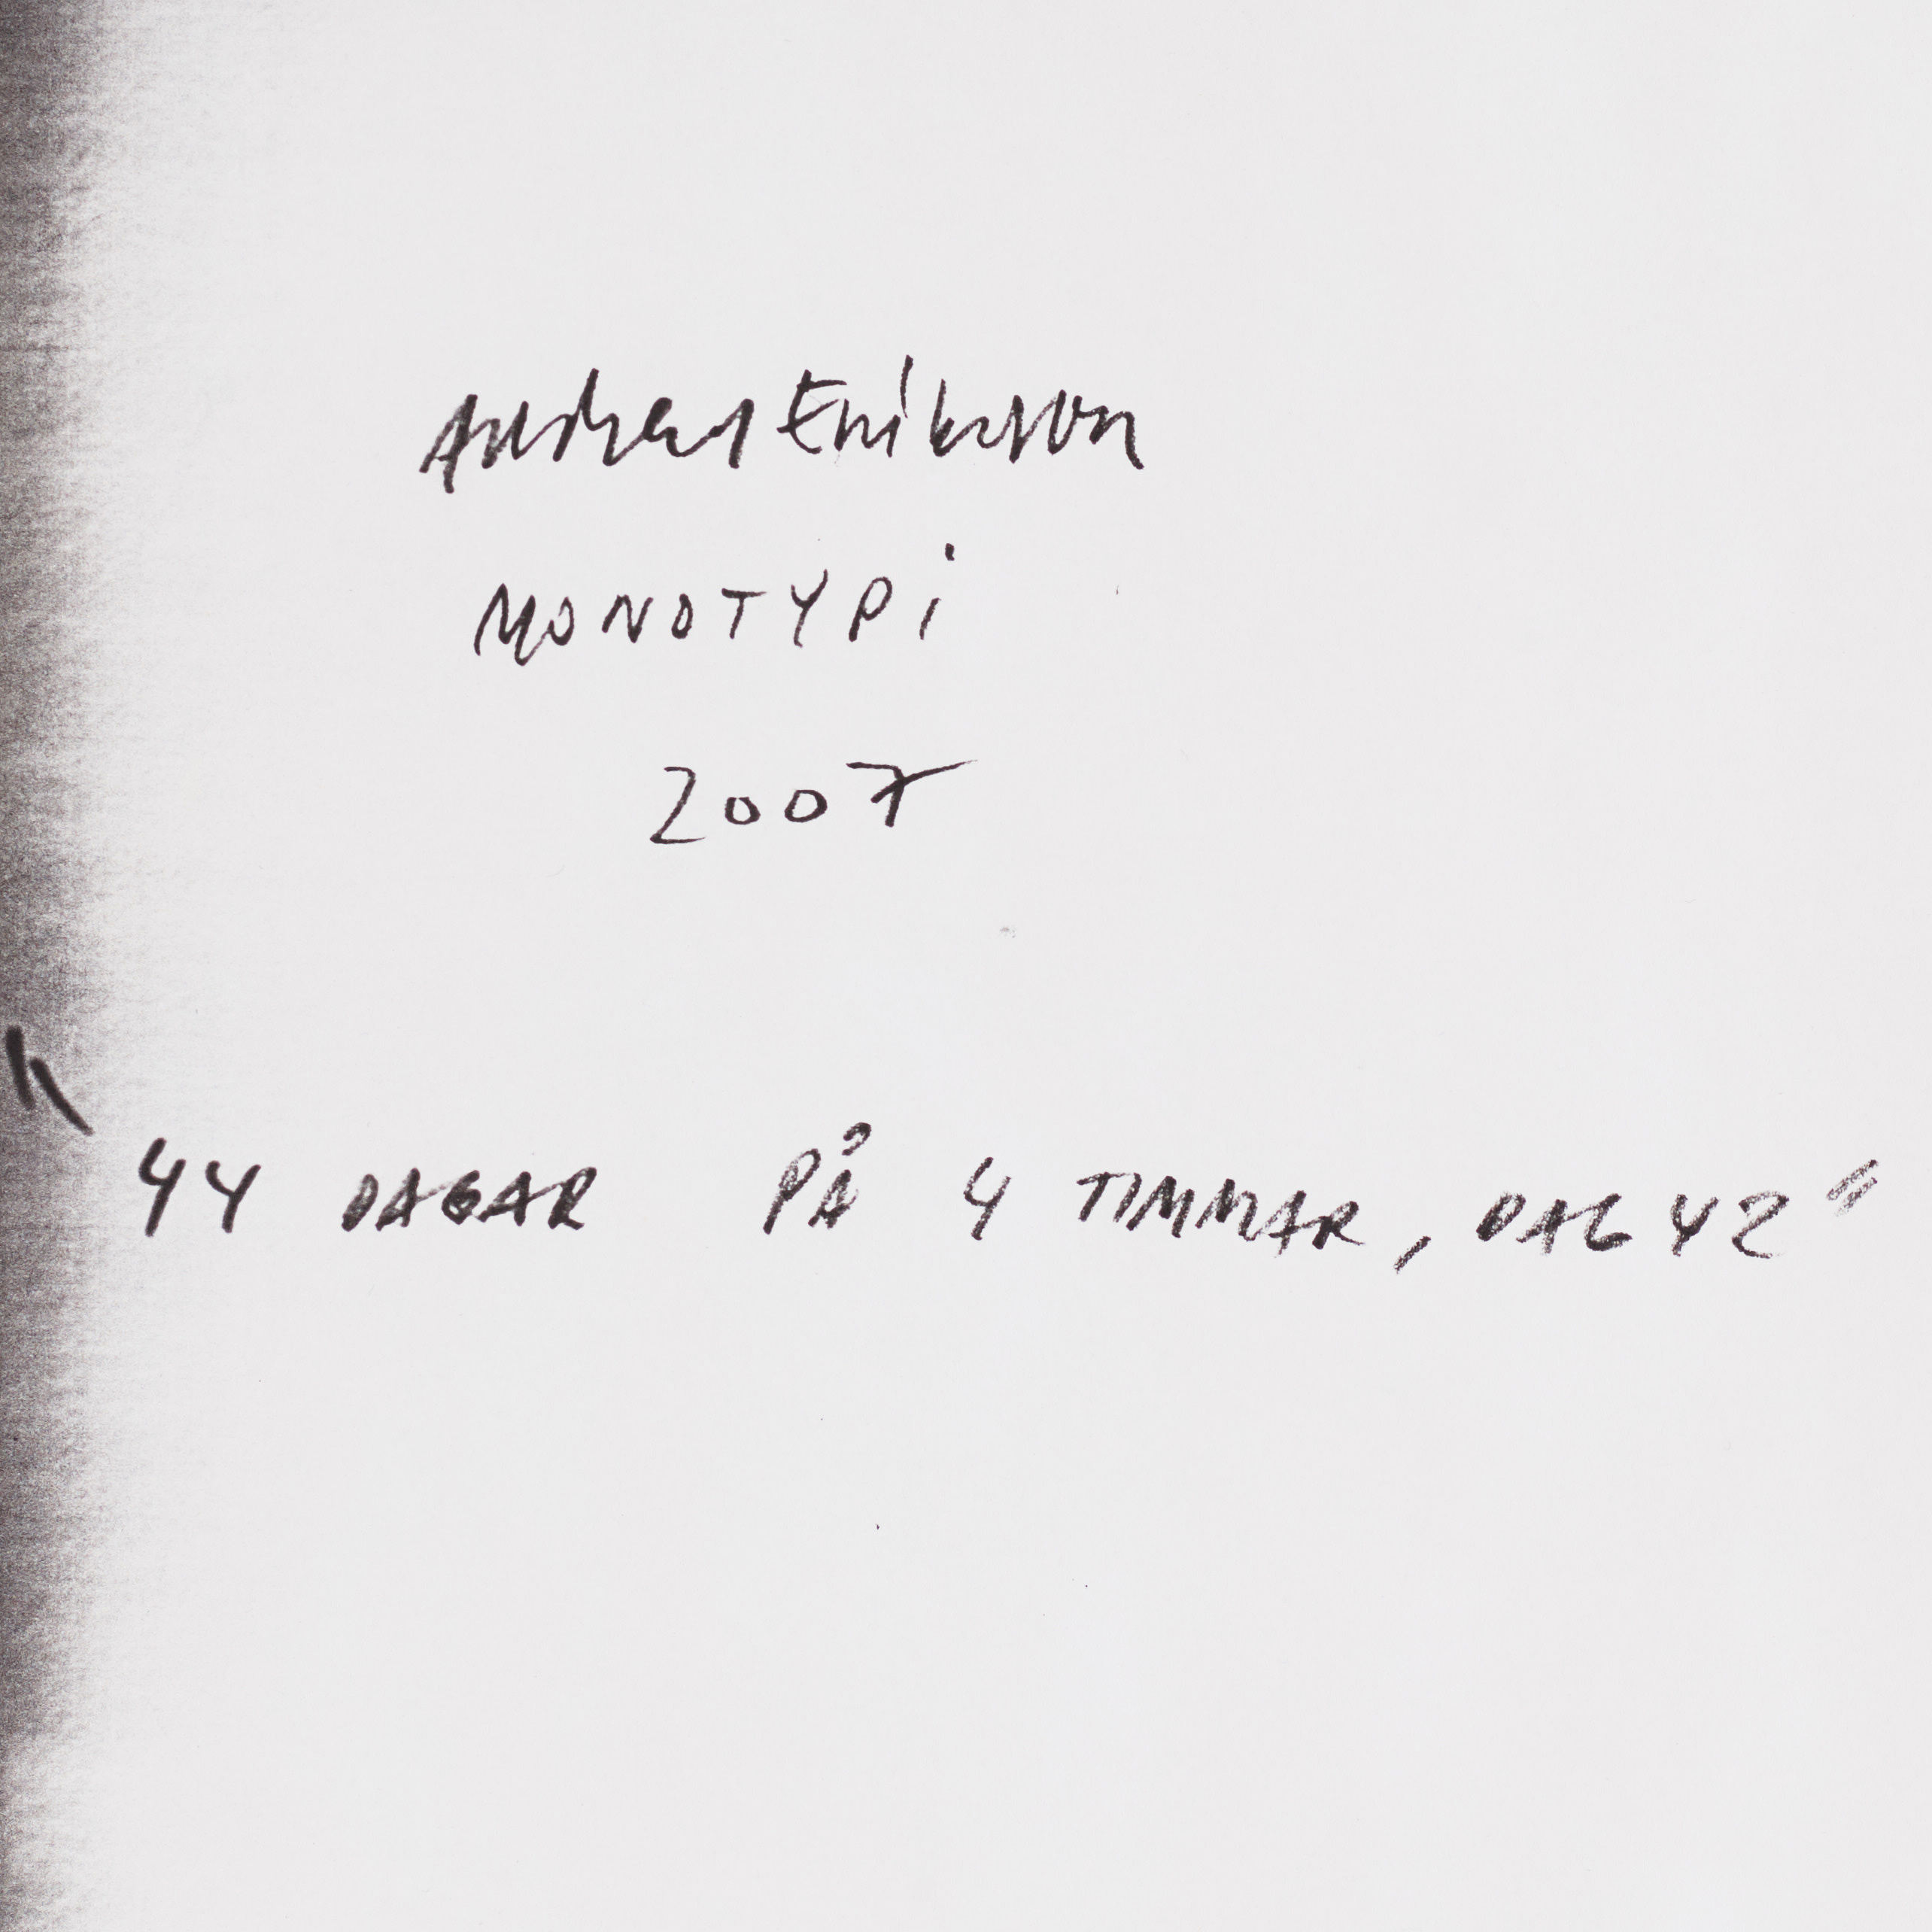 Andreas Eriksson
MONOTYPi
2007
"44 DAGAR PÅ 4 TIMMAR, DAG 42"